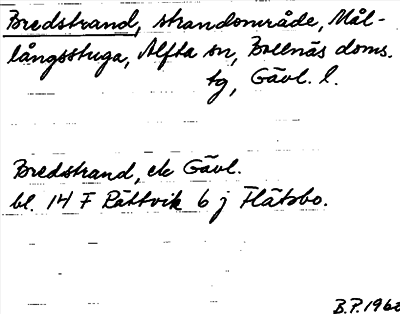 Bredstrand, strandområde, Mål-
långsstuga, Alfta sn, Bollnäs doms.
tg, Gävl. l.
Bredstrand, ek Gävl.
bl. 14 F Rättvik 6 j Flätsbo.
B.P. 196